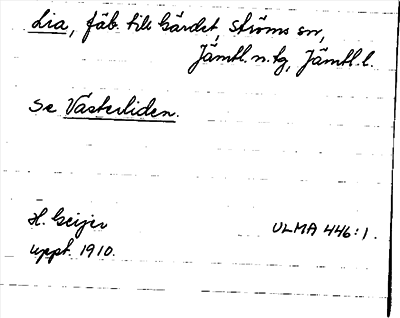 Lia, fäb. till Gärdet, Ströms sn,
Jämtl. n. tg, Jämtl. l.
Se Västerliden.
H. Geijer ULMA 446:1.
uppt. 1910.